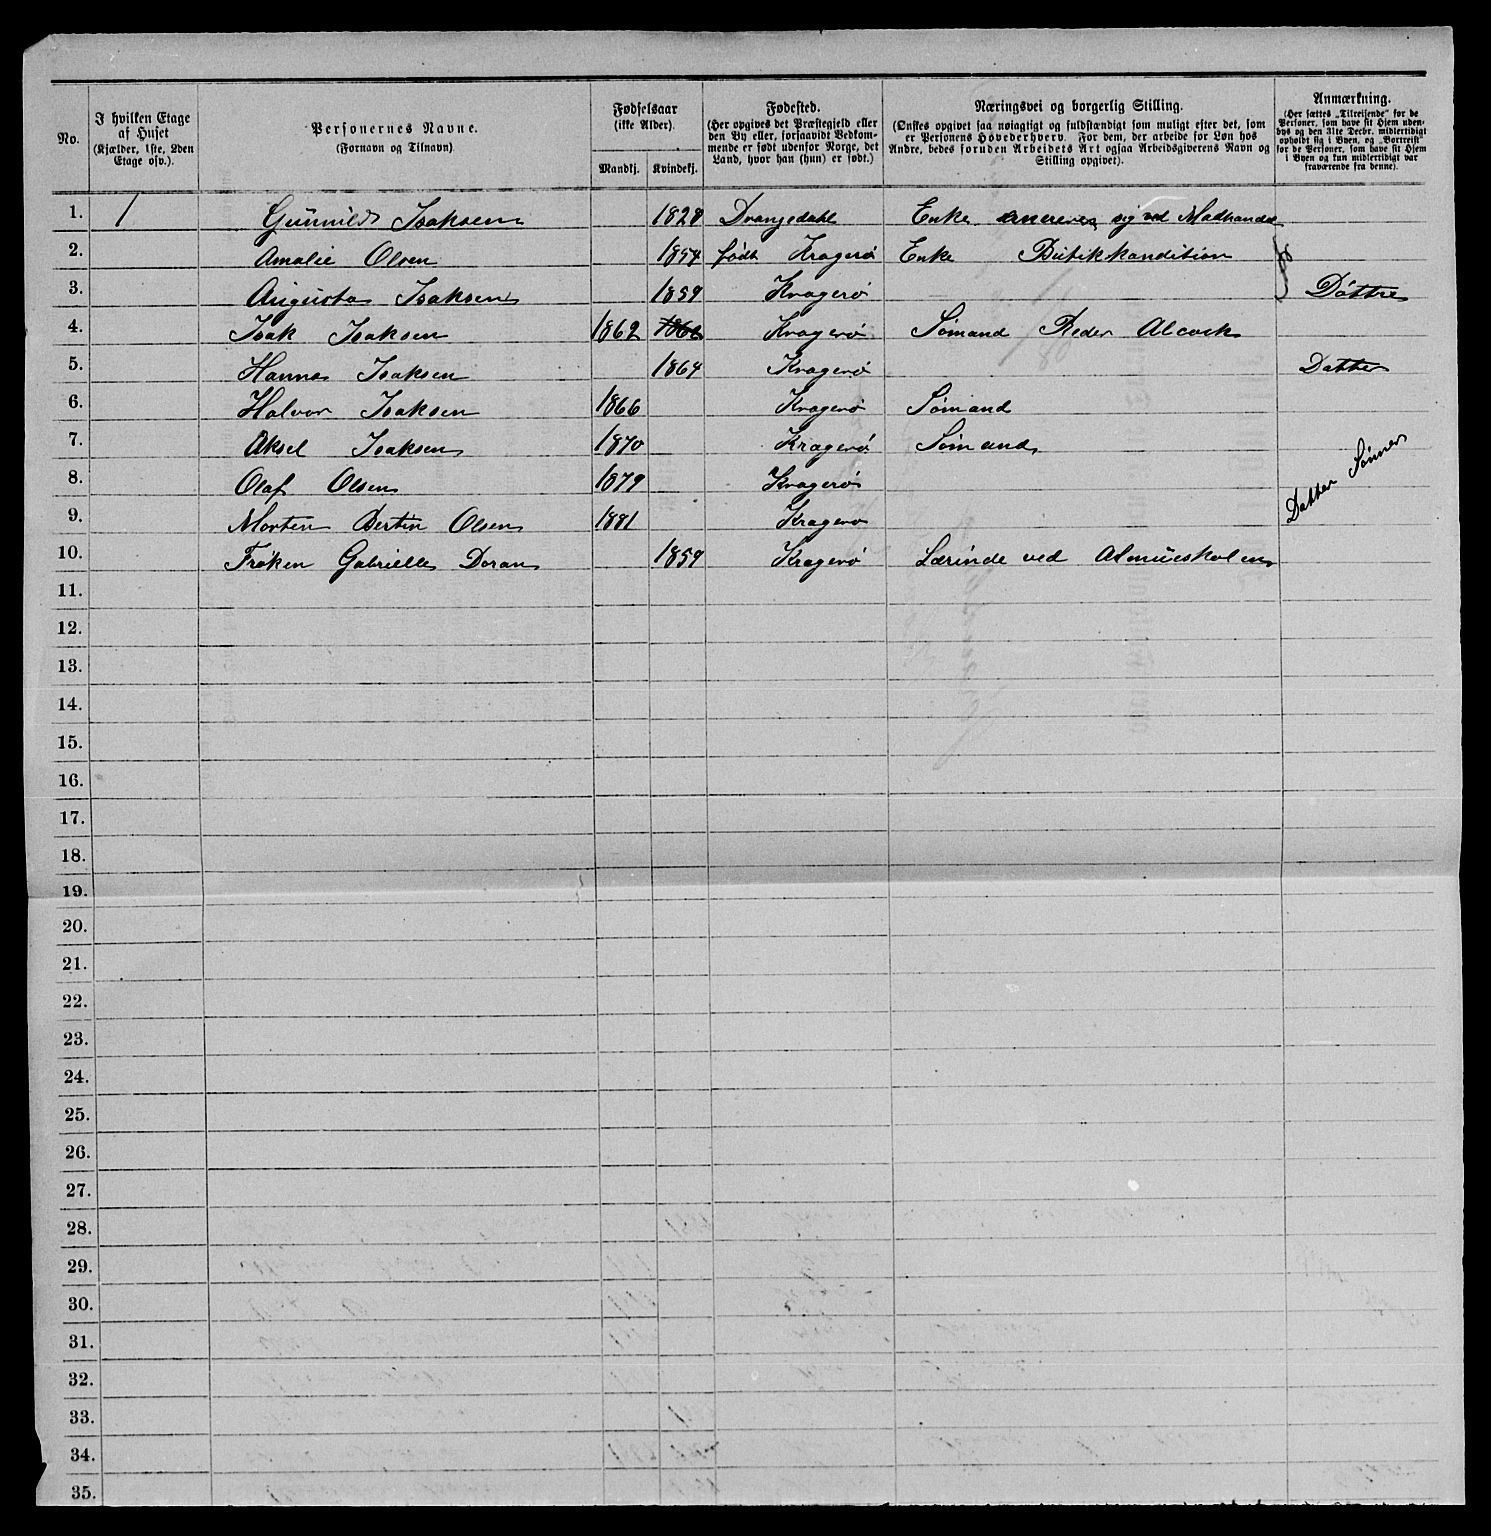 No.
I hvilken Etage
af Huset
(Kjælder, 1ste, 2den
Etage osv.).
Personernes Navne.
(Fornavn og Tilnavn)
Fødselsaar
(ikke Alder).
Mandkj. Kvindekj.
Fødested.
(Her opgives det Præstegjeld eller
den By eller, forsaavidt Vedkom-
mende er født udenfor Norge, det
Land, hvor han (hun) er født.)
Næringsvei og borgerlig Stilling.
(Ønskes opgivet saa nøiagtigt og fuldstændigt som muligt efter det, som
er Personens Hovederhverv. For dem, der arbeide for Løn hos
Andre, bedes foruden Arbeidets Art ogsaa Arbeidsgiverens Navn og
Stilling opgivet).
Anmærkning.
(Her sættes „Tilreisende“ for de
Personer, som have sit Hjem uden-
bys og den 31te Decbr. midlertidigt
opholdt sig i Byen, og „Bortreist“
for de Personer, som have sit Hjem
i Byen og kun midlertidigt var
fraværende fra denne).
1. 1 Gunnild Isaksen 1828 Drangedahl Enke sig ved Madhandel
2. Amalie Olsen 1854 født Kragerö Enke Butikkondition
3. Augusta Isaksen 1859 Kragerö Döttre
4. Isak Isaksen 1862 1862 Kragerö Sömand Reder Alcock
5. Hanna Isaksen 1864 Kragerö Datter
6. Halvor Isaksen 1866 Kragerö Sömand
7. Aksel Isaksen 1870 Kragerö Sömand
8. Olaf Olsen 1879 Kragerö
9. Morten Bertin Olsen 1881 Kragerö Datter Sönner
10. Fröken Gabrielle Doran 1859 Kragerö Lærinde ved Almueskolen
11.
12.
13.
14.
15.
16.
17.
18.
19.
20.
21.
22.
23.
24.
25.
26.
27.
28.
29.
30.
31.
32.
33.
34.
35.